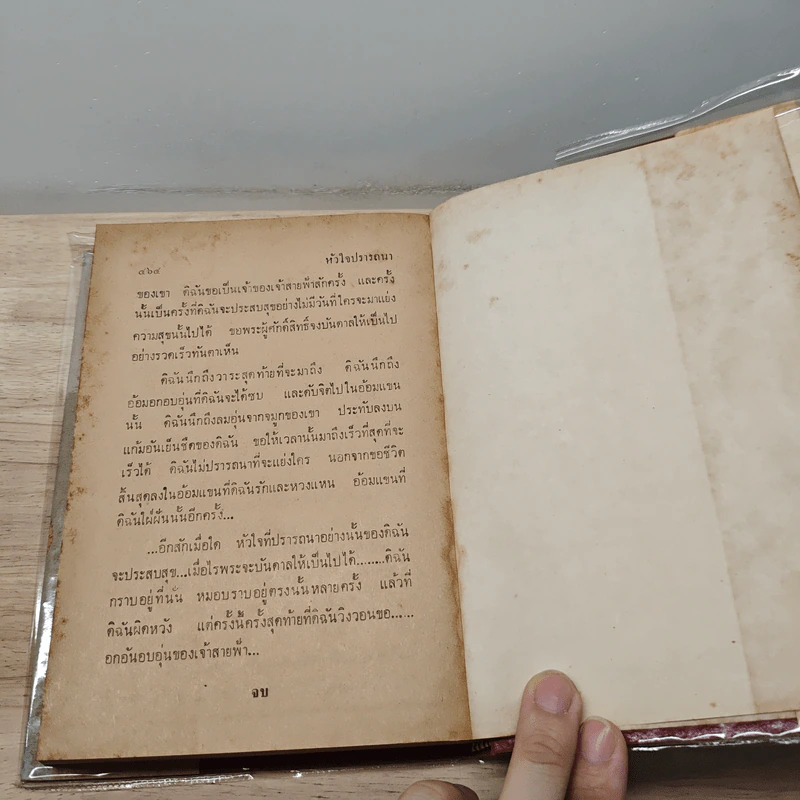 ๔๖๔ หัวใจปรารถนา
ของเขา ดิฉันขอเป็นเจ้าของเจ้าสายฟ้าสักครั้ง และครั้ง
นั้นเป็นครั้งที่ดิฉันจะประสบสุขอย่างไม่มีวันที่ใครจะมาแย่ง
ความสุขนั้นไปได้ ขอพระผู้ศักดิ์สิทธิ์จงบันดาลให้เป็นไป
อย่างรวดเร็วทันตาเห็น
ดิฉันนึกถึงวาระสุดท้ายที่จะมาถึง ดิฉันนึกถึง
อ้อมอกอบอุ่นที่ดิฉันจะได้ซบ และดับจิตไปในอ้อมแขน
นั้น ดิฉันนึกถึงลมอุ่นจากจมูกของเขา ประทับลงบน
แก้มอันเย็นชืดของดิฉัน ขอให้เวลานั้นมาถึงเร็วที่สุดที่จะ
เร็วได้ ดิฉันไม่ปรารถนาที่จะแย่งใคร นอกจากขอชีวิต
สิ้นสุดลงในอ้อมแขนที่ดิฉันรักและหวงแหน อ้อมแขนที่
ดิฉันใฝ่ฝันนั้นอีกครั้ง...
...อีกสักเมื่อใด หัวใจที่ปรารถนาอย่างนั้นของดิฉัน
จะประสบสุข...เมื่อไรพระจะบันดาลให้เป็นไปได้........ดิฉัน
กราบอยู่ที่นั่น หมอบราบอยู่ตรงนั้นหลายครั้ง แล้วที่
ดิฉันผิดหวัง แต่ครั้งนี้ครั้งสุดท้ายที่ดิฉันวิงวอนขอ......
อกอันอบอุ่นของเจ้าสายฟ้า...
จบ